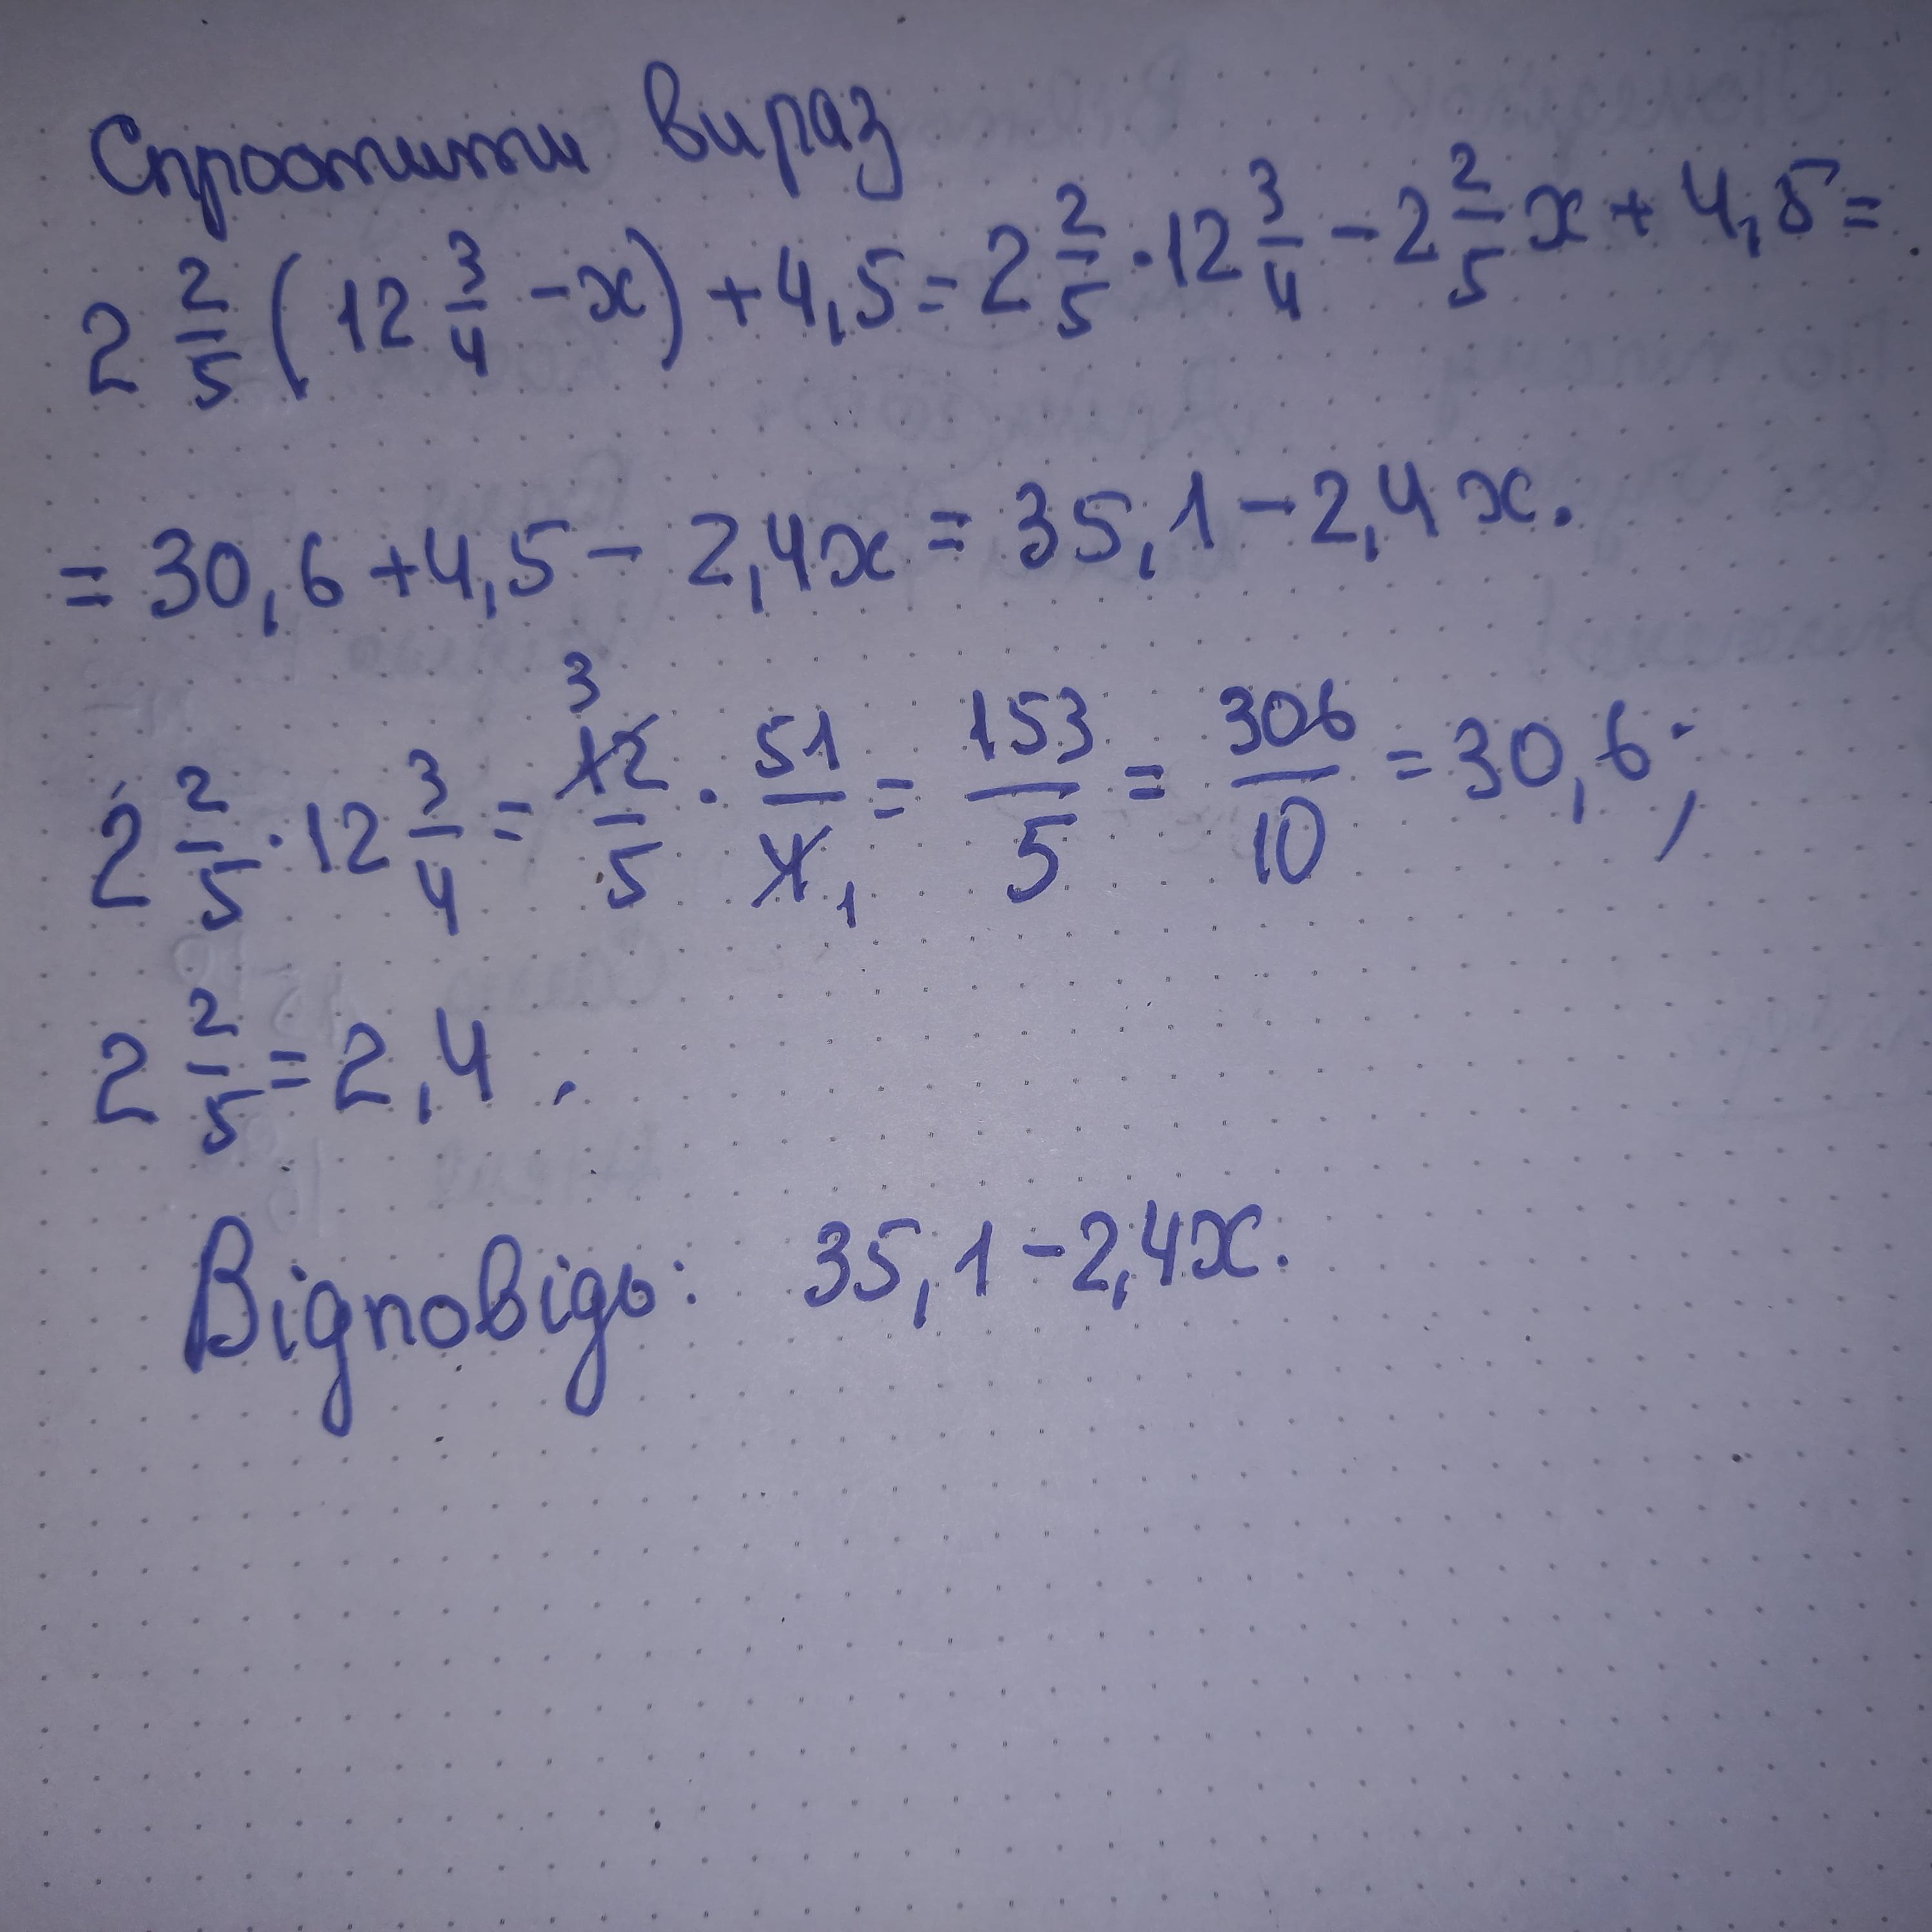 Спростити вираз
2 2/5 (12 3/4 - x) + 4,5 = 2 2/5 · 12 3/4 - 2 2/5 x + 4,5 =
= 30,6 + 4,5 - 2,4x = 35,1 - 2,4x.
2 2/5 · 12 3/4 = 12/5 · 51/4 = 153/5 = 306/10 = 30,6;
3 1
2 2/5 = 2,4.
Відповідь: 35,1 - 2,4x.